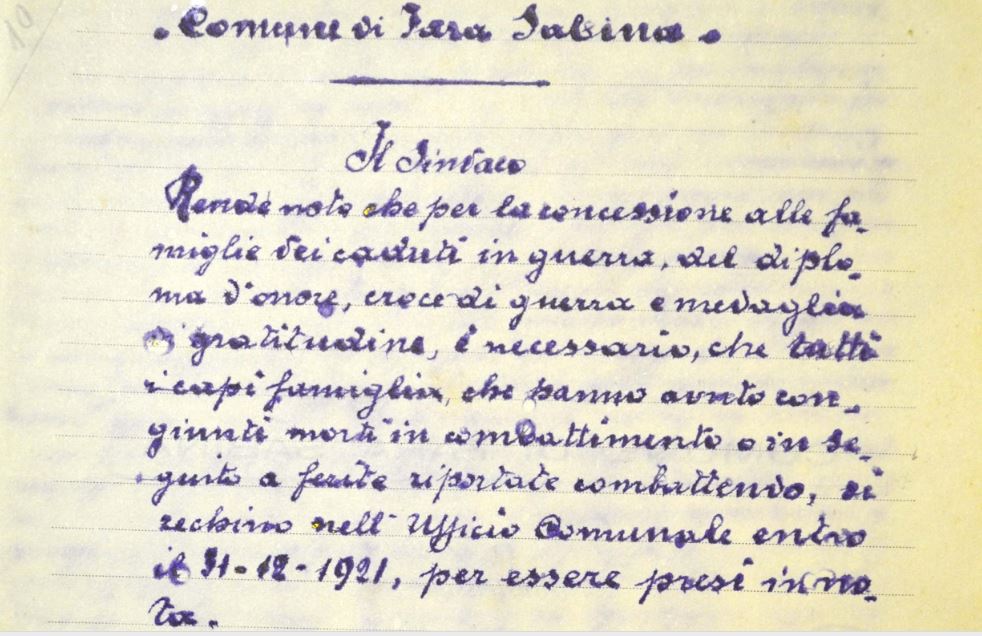 . Comune di Fara Sabina .
Il Sindaco
Rende noto che per la concessione alle fa-
miglie dei caduti in guerra, del diplo-
ma d'onore, croce di guerra e medaglia
di gratitudine, è necessario, che tutti
i capi famiglia, che hanno avuto con-
giunti morti in combattimento o in se-
guito a ferite riportate combattendo, si
rechino nell'Ufficio Comunale entro
il 31-12-1921, per essere presi in no-
ta.